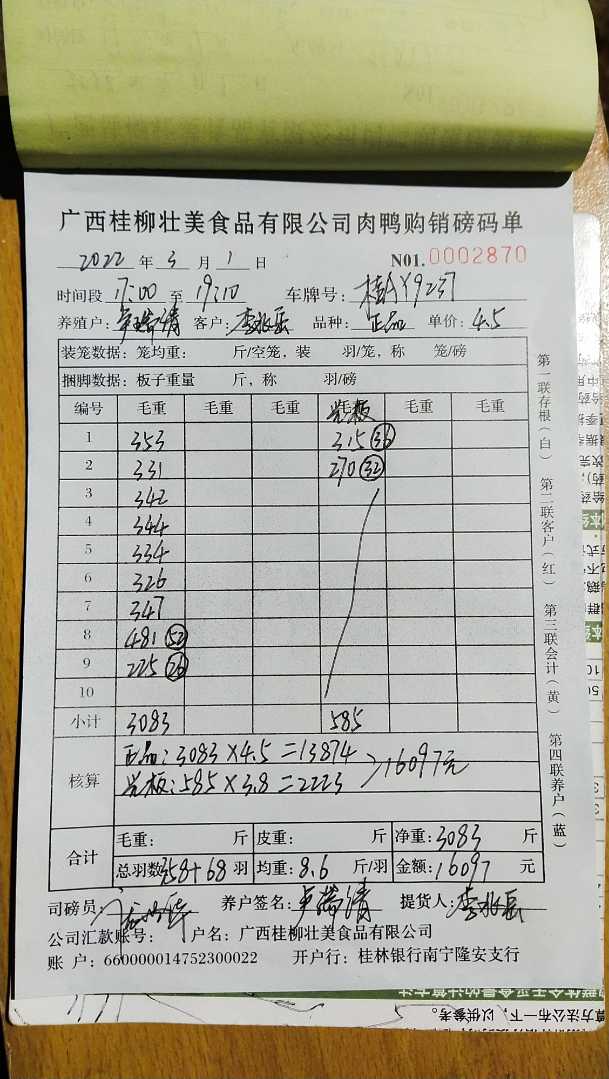 广西桂柳壮美食品有限公司肉鸭购销磅码单
2022 年 3 月 1 日 N01.0002870
时间段 17:00 至 19:10 车牌号: 桂AY9237
养殖户: 客户: 品种: 正品 单价: 4.5
装笼数据: 笼均重: 斤/空笼, 装 羽/笼, 称 笼/磅
捆脚数据: 板子重量 斤, 称 羽/磅
编号 毛重 毛重 毛重 毛重 毛重 毛重
1 353 315 36
2 331 270 32
3 342
4 344
5 334
6 326
7 347
8 481 52
9 225 26
10
小计 3083 585
核算
正品: 3083×4.5=13874
板: 585×3.8=2223 16097元
合计
毛重: 斤 皮重: 斤 净重: 3083 斤
总羽数 358+68 羽 均重: 8.6 斤/羽 金额: 16097 元
司磅员: 养户签名: 提货人:
公司汇款账号: 户名: 广西桂柳壮美食品有限公司
账 户: 660000014752300022 开户行: 桂林银行南宁隆安支行
第一联存根(白) 第二联客户(红) 第三联会计(黄) 第四联养户(蓝)
算方法公布一下, 以供参考。